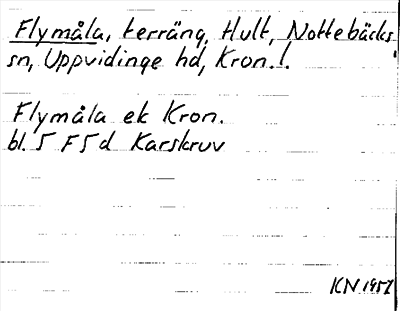 Flymåla, terräng, Hult, Nottebäcks
sn, Uppvidinge hd, Kron. l.
Flymåla ek Kron.
bl. 5 F 5 d Karskruv
KN 1951